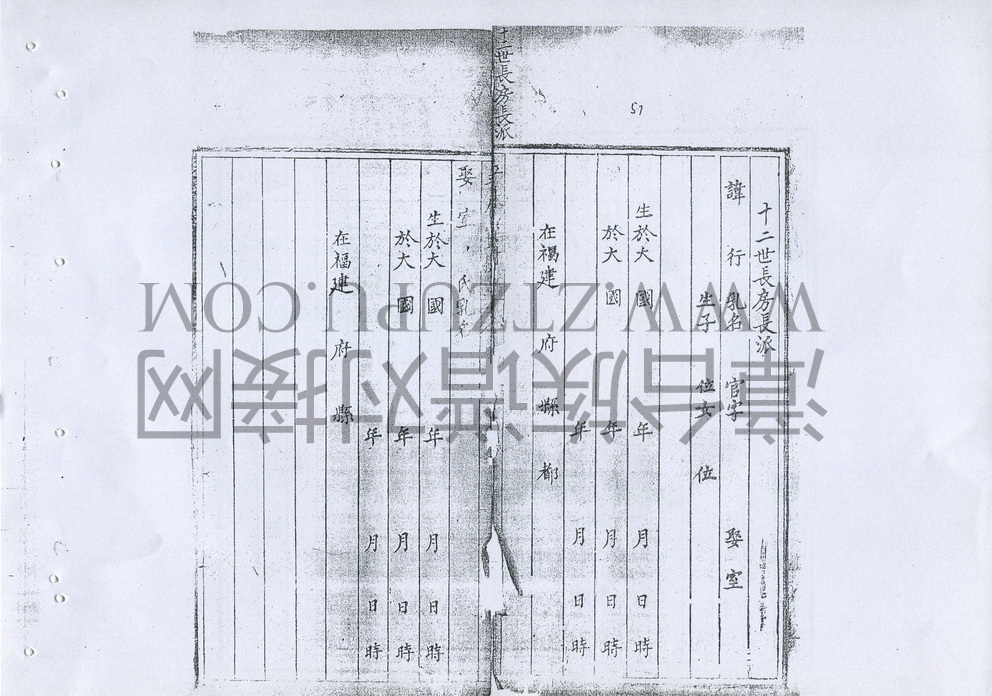 十二世長房長派
57
十二世長房長派
諱 行 乳名 官字 娶 室
生子 位女 位
生於大 國 年 月 日 時
於大 國 年 月 日 時
年 月 日 時
在福建 府 縣 都
娶 室 氏乳名
生於大 國 年 月 日 時
於大 國 年 月 日 時
年 月 日 時
在福建 府 縣
WWW.ZTZUPU.COM
漳台族谱对接网